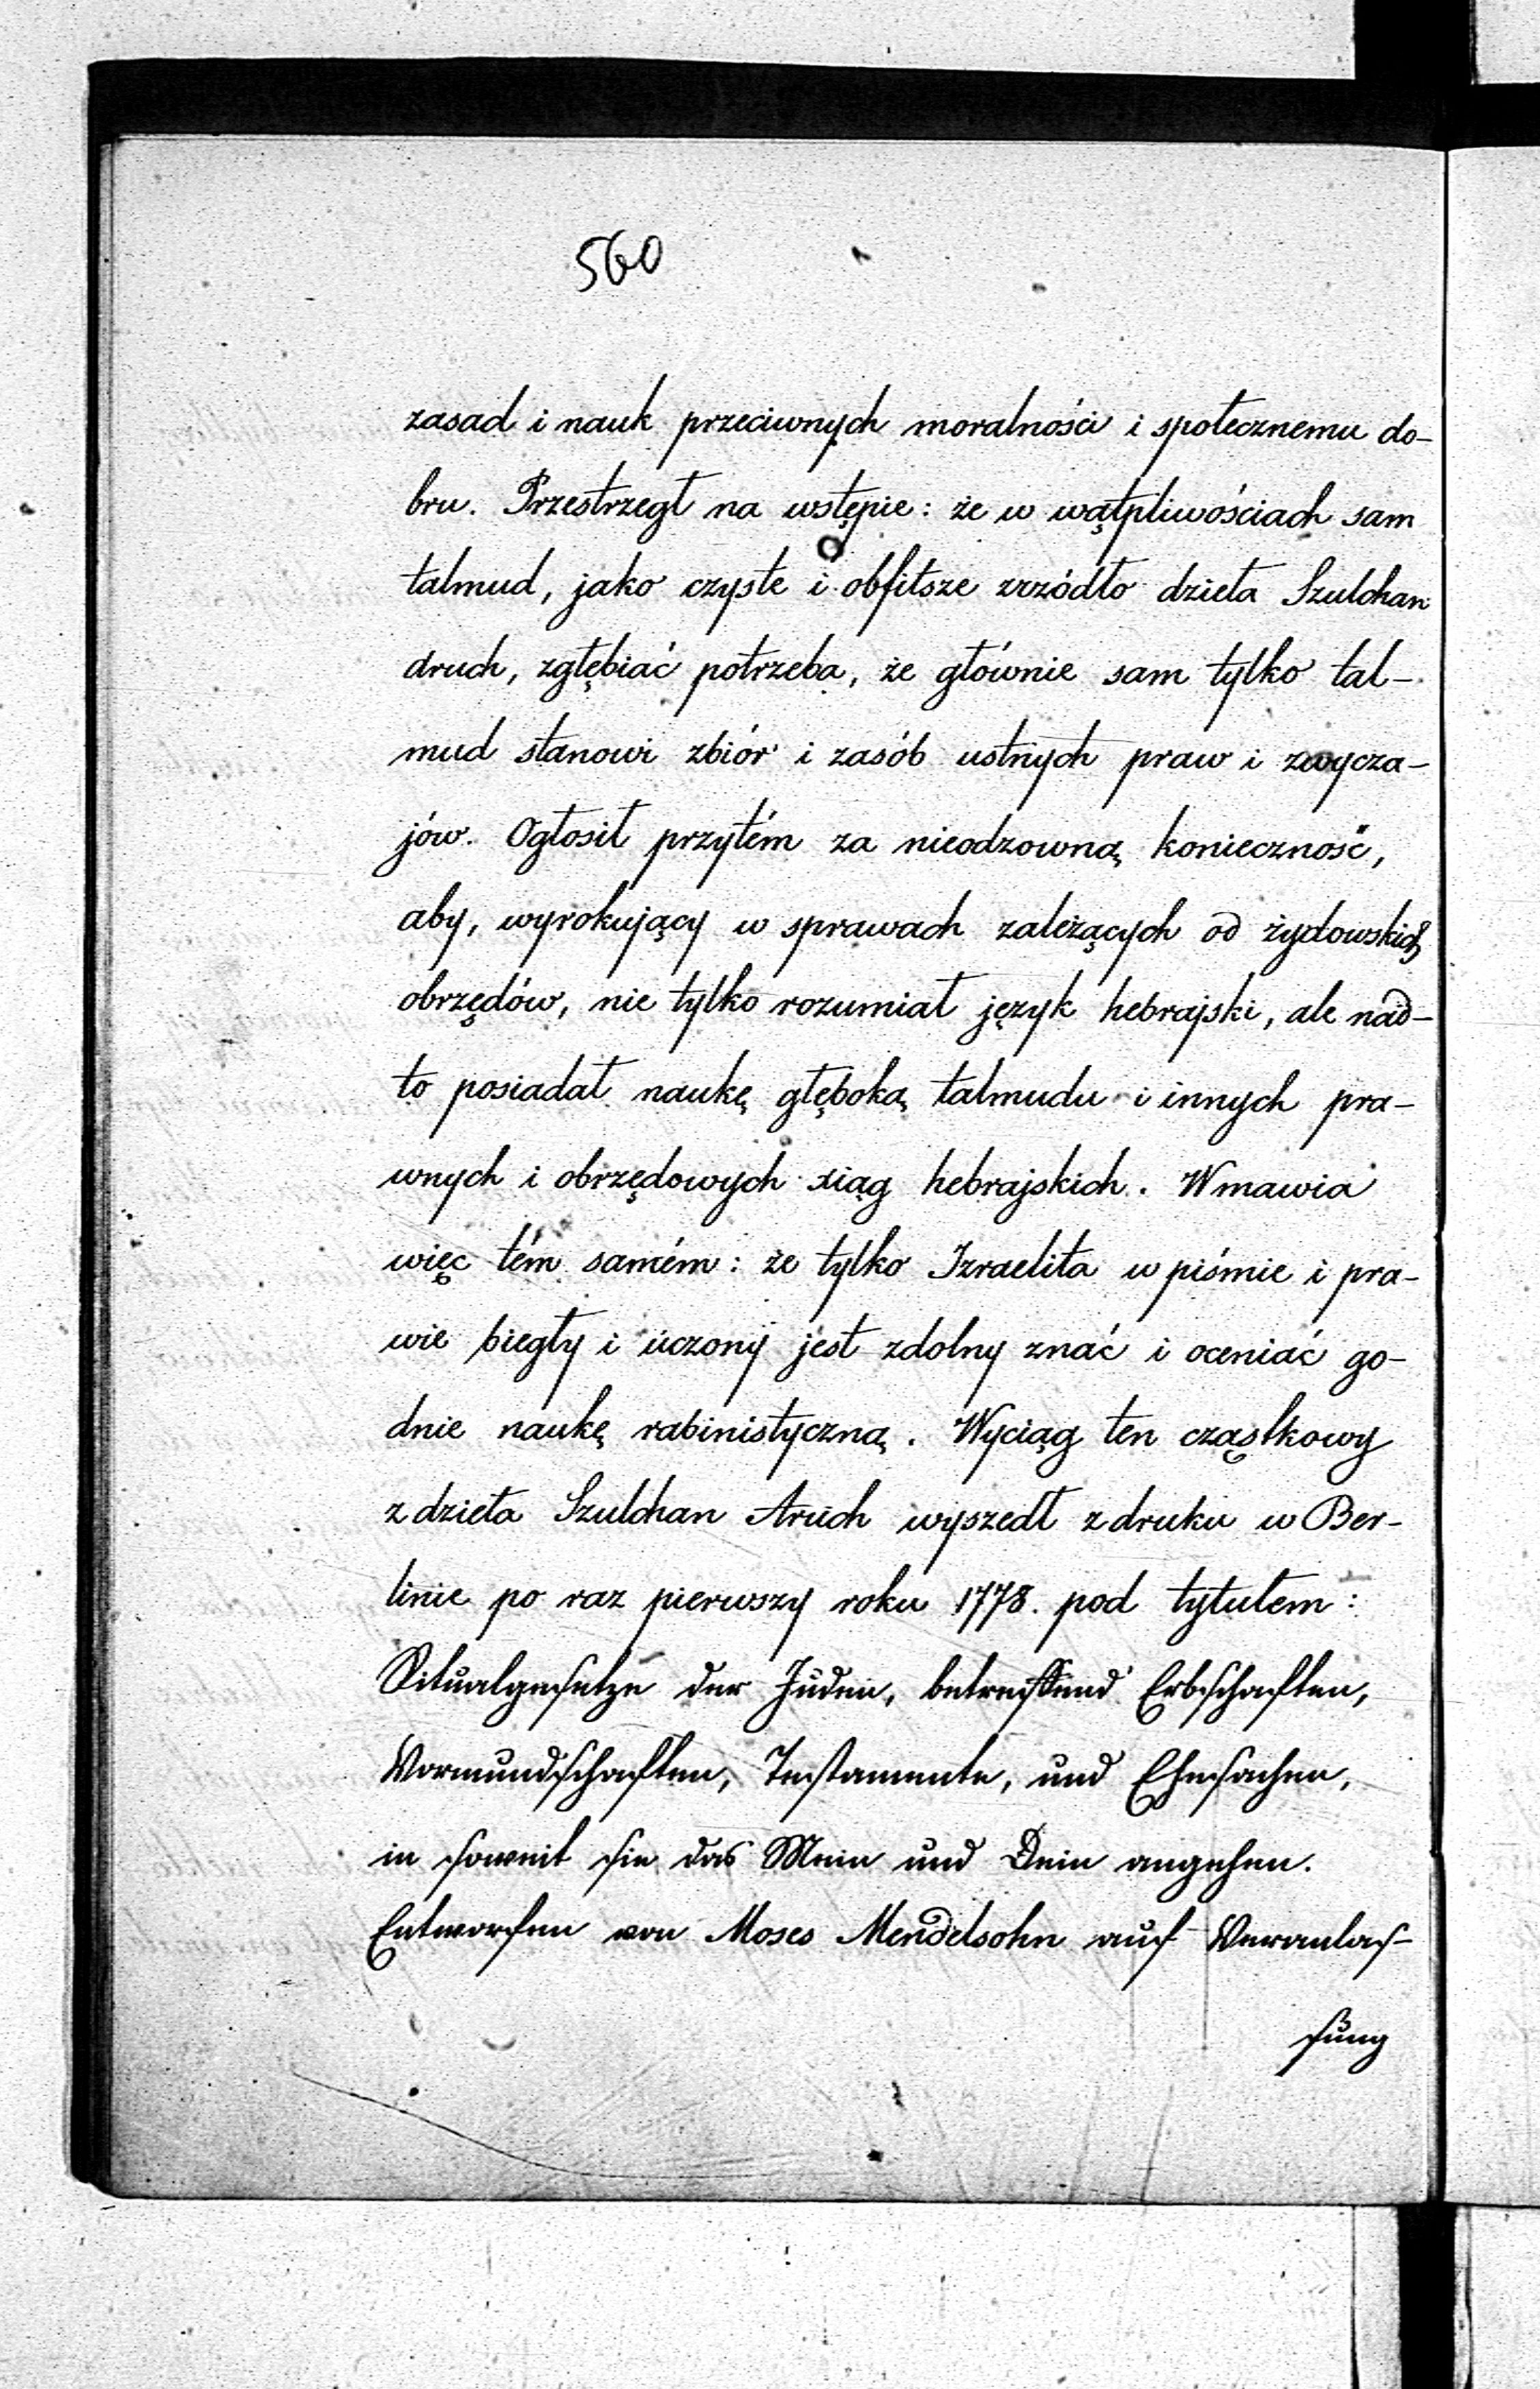 560
zasad i nauk przeciwnych moralności i społecznemu do-
bru. Przestrzegł na wstępie: że w wątpliwościach sam
talmud, jako czyste i obfitsze zrzódło dzieła Szulchan
Aruch, zgłębiać potrzeba, że głównie sam tylko tal-
mud stanowi zbiór i zasób ustnych praw i zwycza-
jów. Ogłosił przytém za nieodzowną konieczność,
aby, wyrokujący w sprawach zależących od żydowskich
obrzędów, nie tylko rozumiał język hebrajski, ale nad-
to posiadał naukę głęboką talmudu i innych pra-
wnych i obrzędowych xiąg hebrajskich. Wmawia
więc tém samém: że tylko Izraelita w piśmie i pra-
wie biegły i uczony jest zdolny znać i oceniać go-
dnie naukę rabinistyczną. Wyciąg ten cząstkowy
z dzieła Szulchan Aruch wyszedł z druku w Ber-
linie po raz pierwszy roku 1778. pod tytułem:
Ritualgesetze der Juden, betreffend Erbschaften,
Vormundschaften, Testamente, und Ehesachen,
in soweit sie das Mein und Dein angehen.
Entworfen von Moses Mendelsohn auf Veranlas-
sung